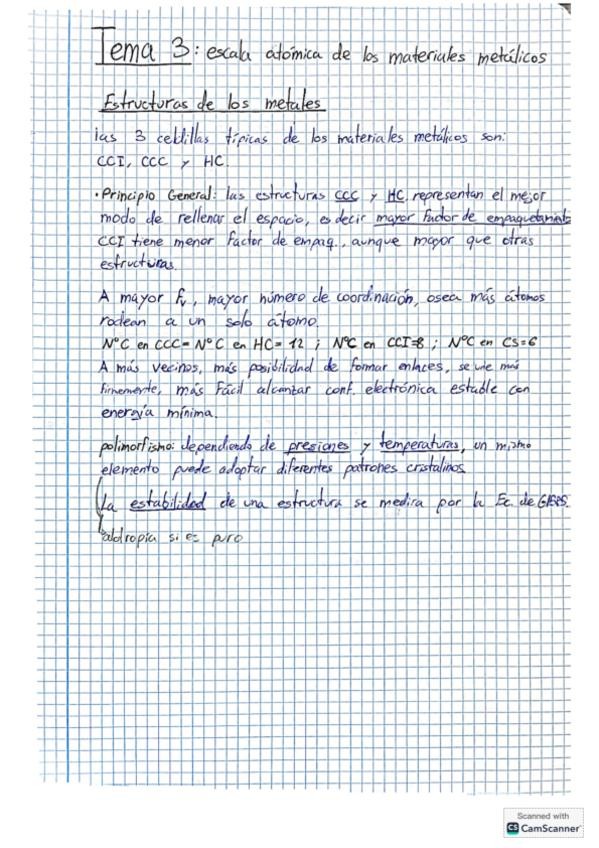 Tema 3: escala atómica de los materiales metálicos
Estructuras de los metales
las 3 celdillas típicas de los materiales metálicos son:
CCI, CCC y HC.
• Principio General: las estructuras CCC y HC representan el mejor
modo de rellenar el espacio, es decir mayor factor de empaquetamiento
CCI tiene menor factor de empaq., aunque mayor que otras
estructuras.
A mayor Fv, mayor número de coordinación, osea más átomos
rodean a un solo átomo.
NºC en CCC = NºC en HC = 12 ; NºC en CCI=8 ; NºC en CS=6
A más vecinos, más posibilidad de formar enlaces, se une más
firmemente, más Fácil alcanzar conf. electrónica estable con
energía mínima.
polimorfismo: dependiendo de presiones y temperaturas, un mismo
elemento puede adoptar diferentes patrones cristalinos.
La estabilidad de una estructura se medira por la Ec. de GIBBS.
alotropia si es puro
Scanned with
CS CamScanner